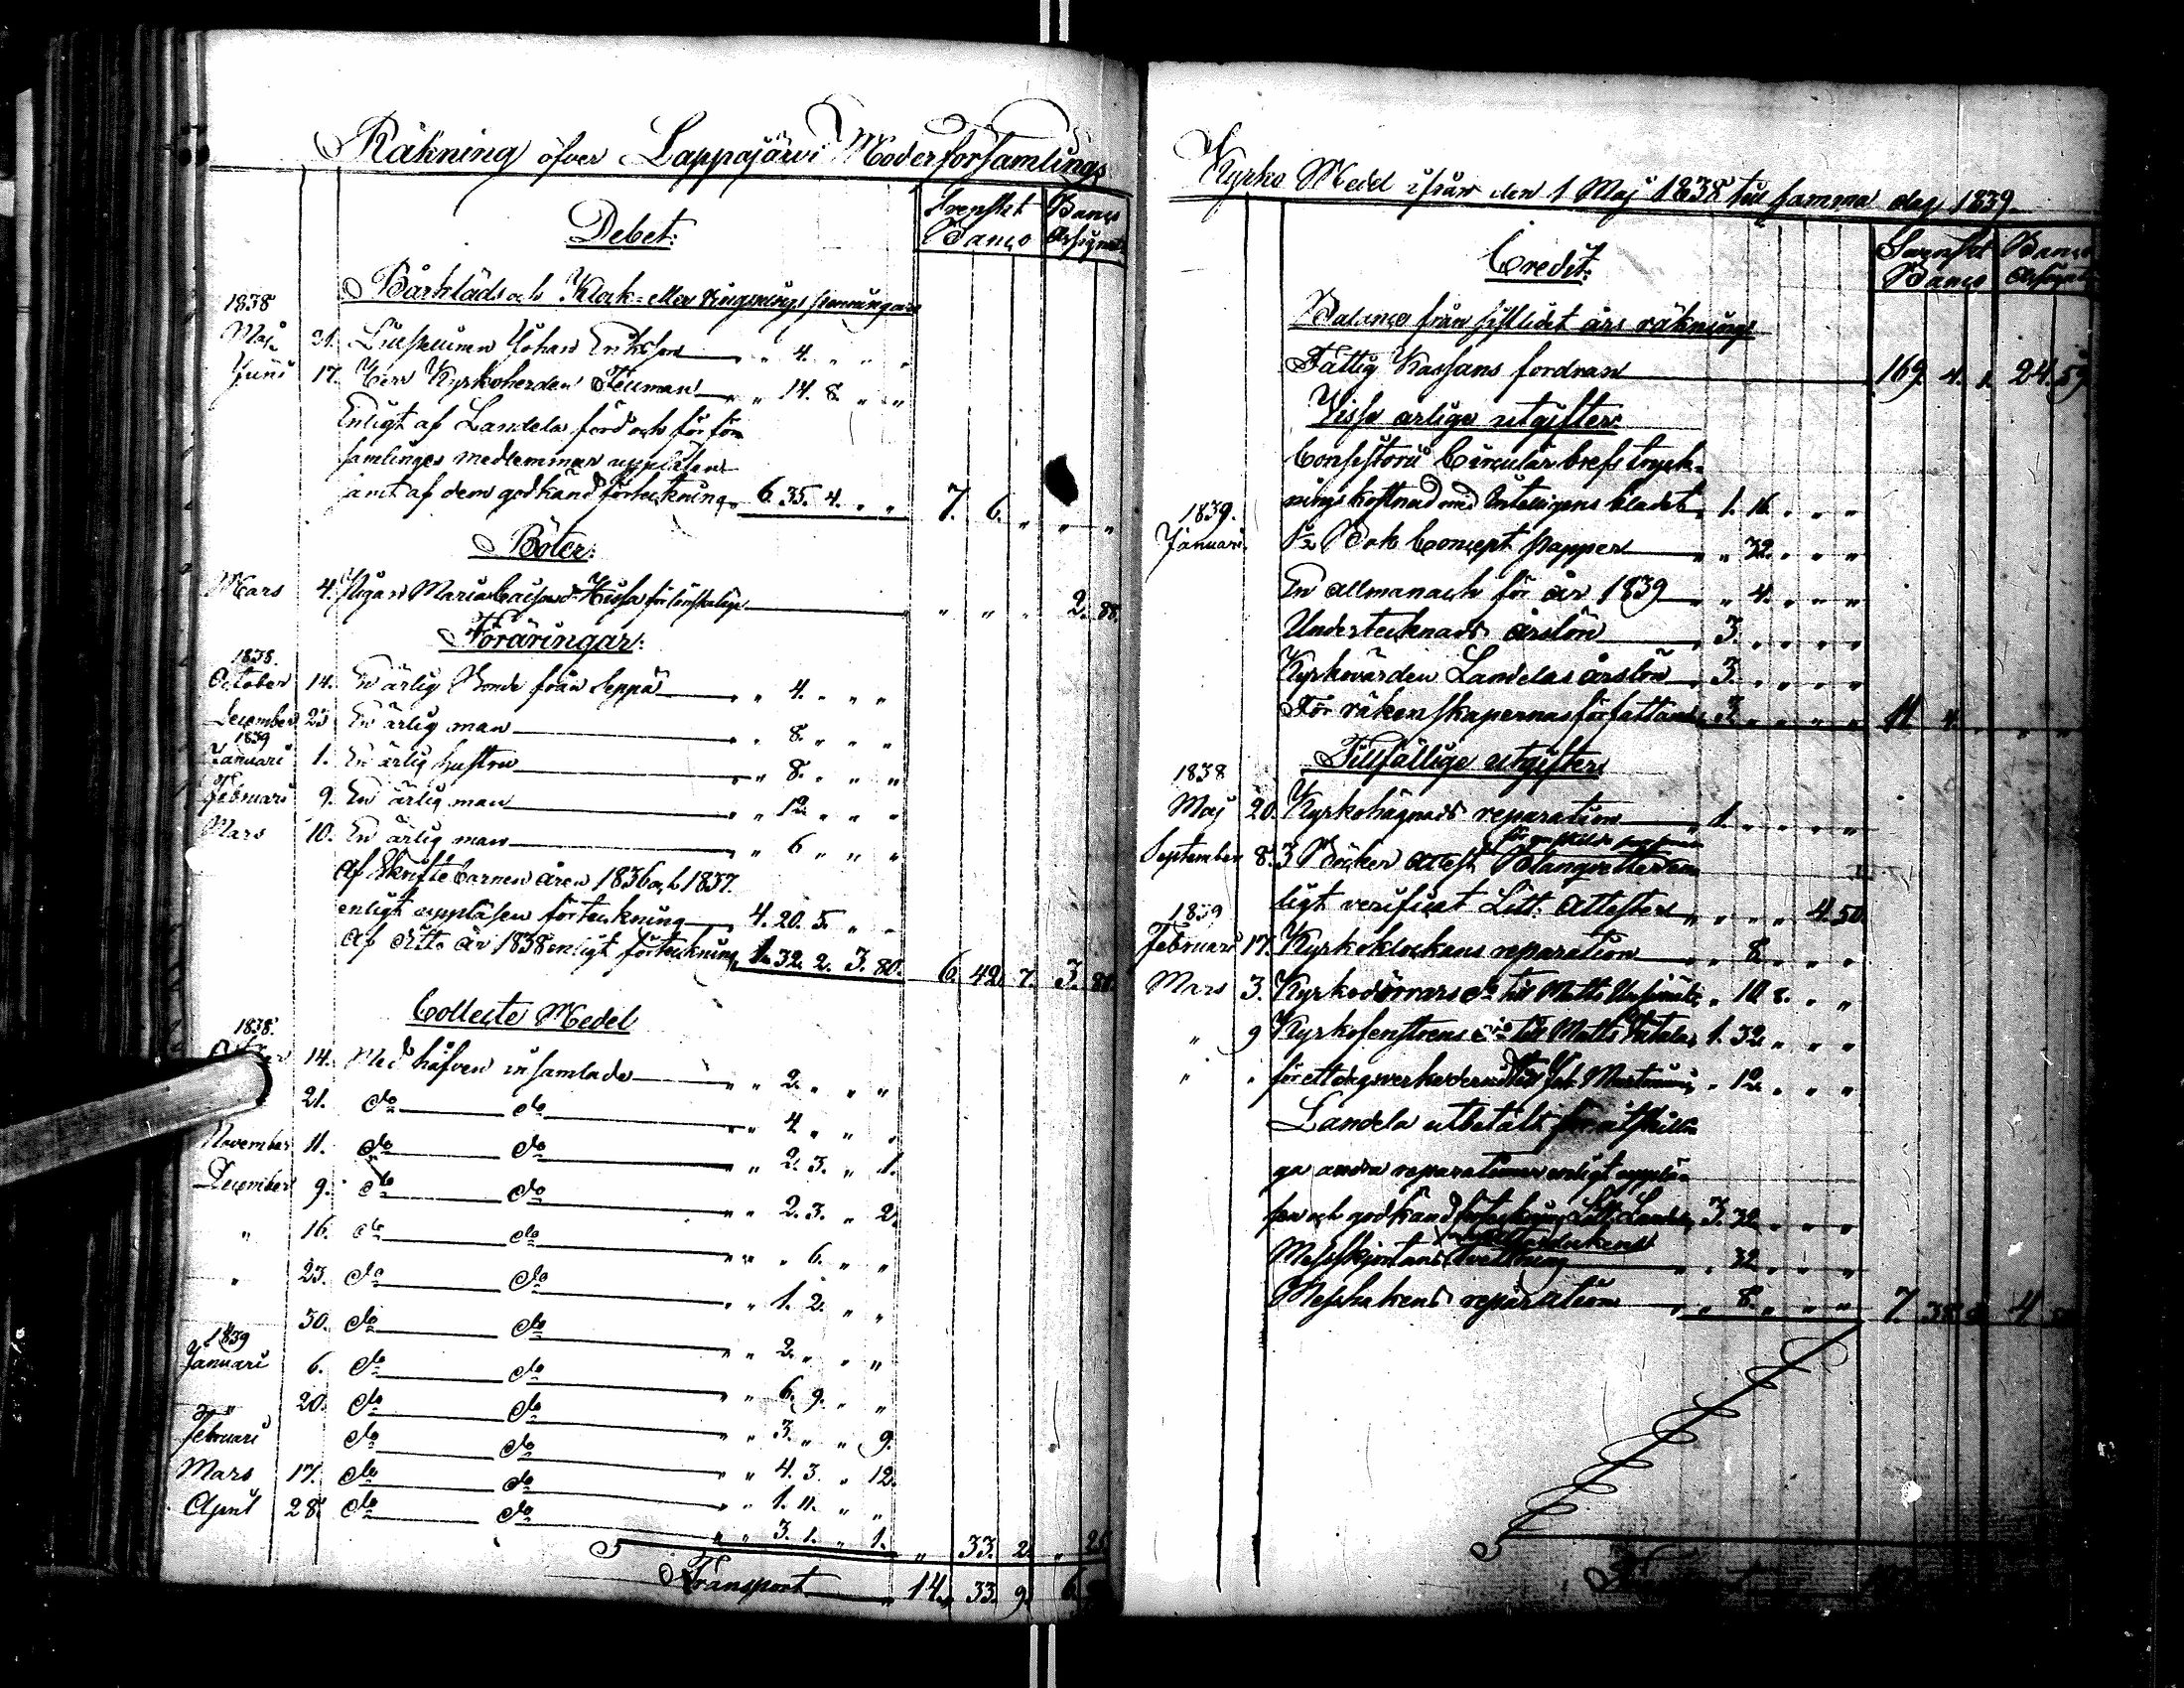 Räkning öfver Lappajärvi Moderförsamlings
Debet: Svenskt Banco Banco Assignat.
Bårkläds och Klock- eller Ringnings penningar
1838
Maj 21. Johan Eriksson " 4. " " "
Junii 17. Herr Kyrkoherden " 14. 8. " "
Enligt af Landela förd och för för
samlingens medlemmar uppläsen
samt af dem godkänd förteckning 6. 35. 4. " " 7. 6. " " "
Böter:
Mars 4. Pigan Maria " " " 2. 88.
Föräringar:
1838.
October 14. En ärlig Bonde från Seppä " 4. " " "
December 25 En ärlig man " 8. " " "
1839
Januari 1. En ärlig hustru " 8. " " "
Februari 9. En ärlig man " 12. " " "
Mars 10. En ärlig man " 6 " " "
Af Skrifte barnen åren 1836 och 1837.
enligt uppläsen förteckning 4. 20. 5. " "
Af ditto år 1838 enligt förteckning 1. 32. 2. 3. 80. 6. 42. 7. 3. 80.
Collecte Medel
1838.
14. Med håfven insamlade " " 2. " " "
21. do do " " 4 " " "
November 11. do do " " 2. 3. " 1.
December 9. do do " " 2. 3. " 2.
" 16. do do " " " 6. " "
" 23. do do " " 1. 2. " "
30. do do " " 2. " " "
1839
Januari 6. do do " " 6. 9. " "
" 20. do do " " 3. " " 9.
Februari do do " " 4. 3. " 12.
Mars 17. do do " " 1. 11. " "
April 28. do do " " 3. 1. " 1. " 33. 2. " 25
Transport 14. 33. 9. 6.
Kyrko Medel ifrån den 1 Maj 1838 till samma dag 1839
Credit: Svenskt Banco Banco Assignat.
Balance från sistledit års räkning
Fattig Kassans fordran 169. 4. 1. 24. 59
Vissa årlige utgifter:
Consistorii Circulär brefs tryck-
1839. nings kostnad med Intelligens bladet 1. 16. " " "
Januari. 1/2 Bok Concept papper " 32. " " "
En allmanach för år 1839 " 4. " " "
Undertecknads årslön 3. " " " "
Kyrkovärden Landelas årslön 3. " " " "
För räkenskapernas författande 3. " " " " 11. 4. " " "
Tillfällige utgifter
1838
Maj 20. Kyrkohägnads reparation 1. " " " "
September 8. 3 Böcker attest Blanqvetter en
1839 ligt verificat Litt. Attester " " " 4. 50.
Februari 17. Kyrkoklockans reparation " 8. " " "
Mars 3. Kyrkodörrars do till Matts " 10. 8. " "
" 9 Kyrkofenstrens do till Matts 1. 32. " " "
" " för ett dagsverke " 12. " " "
Landela utbetalt för åtskilli
ga andra reparationer enligt upplä-
sen och godkänd förteckning Litt. Landela 3. 32. " " "
Messskjortans tvettning " 32. " " "
Messhakens reparation " 8. " " " 7. 38. 8. 4